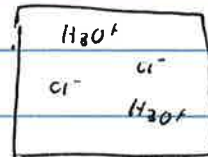 H3O+
Cl-
Cl-
H3O+